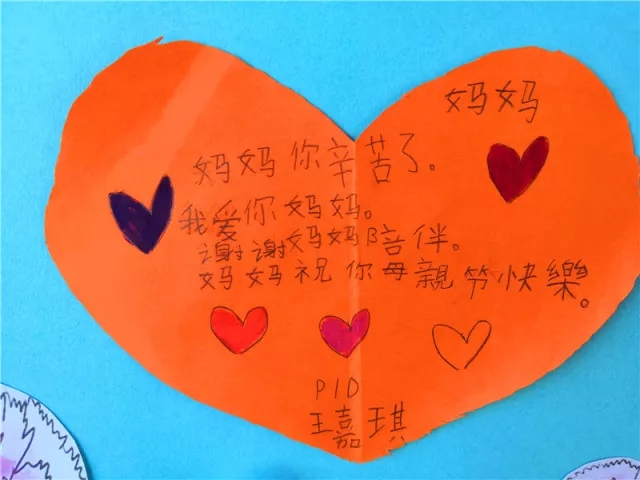 妈妈
妈妈你辛苦了。
我爱你妈妈。
谢谢妈妈陪伴。
妈妈祝你母親节快樂。
P1D
王嘉琪